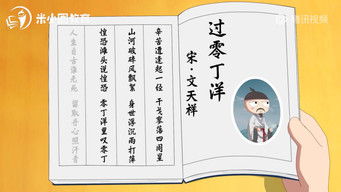 米小圈教育
腾讯视频
过零丁洋
宋·文天祥
辛苦遭逢起一经 干戈寥落四周星
山河破碎风飘絮 身世浮沉雨打萍
惶恐滩头说惶恐 零丁洋里叹零丁
人生自古谁无死 留取丹心照汗青